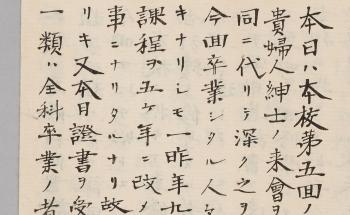 本日ハ本校第五囬ノ
貴婦人紳士ノ来會ヲ
同ニ代リテ深ク之ヲ
今囬卒業シタル人
キナリシモ一昨年九
課程ヲ五ケ年ニ改メ
事ニナリタルナリ故
リキ又本日證書ヲ受
一類ハ全科卒業ノ者